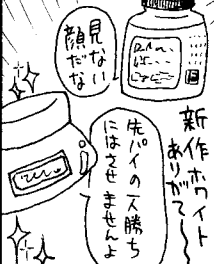 見ない
顔だな
新作ホワイト
ありがて〜
先パイの一人勝ち
にはさせませんよ